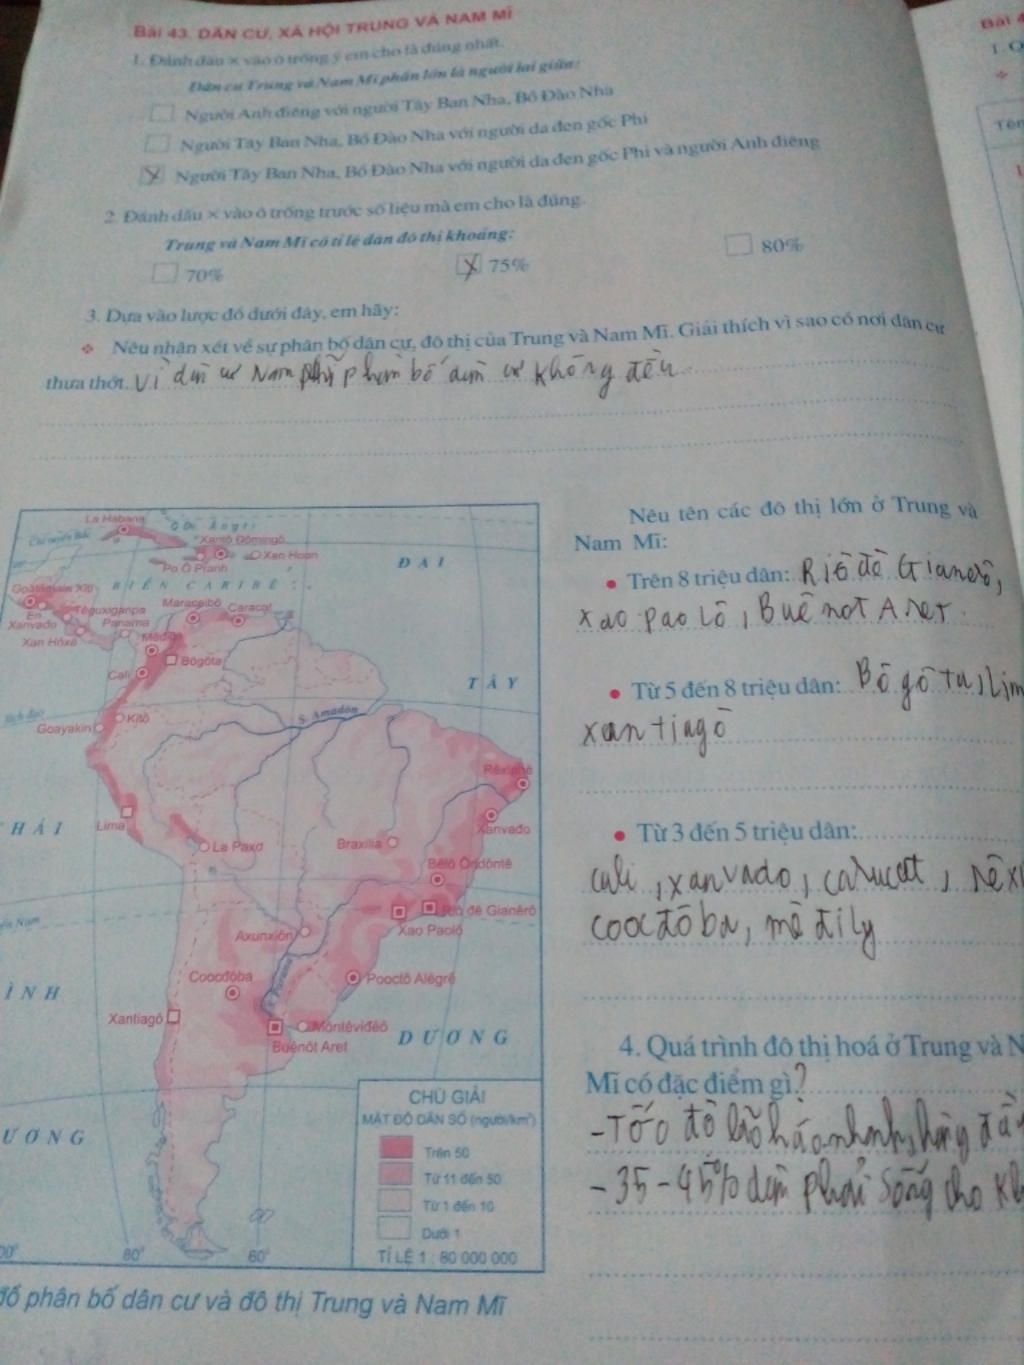 Bài 43. DÂN CƯ, XÃ HỘI TRUNG VÀ NAM MĨ
1. Đánh dấu × vào ô trống ý em cho là đúng nhất.
Dân cư Trung và Nam Mĩ phần lớn là người lai giữa:
Người Anh điêng với người Tây Ban Nha, Bồ Đào Nha
Người Tây Ban Nha, Bồ Đào Nha với người da đen gốc Phi
X Người Tây Ban Nha, Bồ Đào Nha với người da đen gốc Phi và người Anh điêng
2. Đánh dấu × vào ô trống trước số liệu mà em cho là đúng.
Trung và Nam Mĩ có tỉ lệ dân đô thị khoảng:
70% X 75% 80%
3. Dựa vào lược đồ dưới đây, em hãy:
❖ Nêu nhận xét về sự phân bố dân cư, đô thị của Trung và Nam Mĩ. Giải thích vì sao có nơi dân cư
thưa thớt. Vì dân cư Nam phi phân bố dân cư không đều
Nêu tên các đô thị lớn ở Trung và
Nam Mĩ:
• Trên 8 triệu dân: Riô đê Gianerô,
xao paolô, Buê not Aret
• Từ 5 đến 8 triệu dân: Bôgôta, Lim
xantiagô
• Từ 3 đến 5 triệu dân:
cali, xanvado, caracat, Rêxi
coocđôba, mê đily
4. Quá trình đô thị hoá ở Trung và N
Mĩ có đặc điểm gì?
- Tốc độ nhanh, hàng đầ
- 35 - 45% dân phải sống cho
La Habana
Q Đ. Ăngti
Chí tuyến Bắc
Xantô Đômingô
Xan Hoan
Po Ô Pranh
ĐẠI
BIỂN CARIBÊ
Goatêmala Xiti
Têguxiganpa
En Xanvađo
Maracaibô
Caracat
Panama
Xan Hôxê
Bôgôta
Cali
TÂY
Xích đạo
Kitô
S. Amadôn
Goayakin
Rêxiphê
THÁI
Lima
Xanvađo
La Paxơ
Braxilia
Bêlô Ôridôntê
Riô đê Gianêrô
Xao Paolô
Axunxiôn
Coocđôba
Pooctô Alêgrê
ÌNH
Xantiagô
Môntêviđêô
Buênôt Aret
DƯƠNG
CHÚ GIẢI
MẬT ĐỘ DÂN SỐ (người/km²)
ƯƠNG
Trên 50
Từ 11 đến 50
Từ 1 đến 10
Dưới 1
80° 60°
TỈ LỆ 1 : 80 000 000
đồ phân bố dân cư và đô thị Trung và Nam Mĩ
Bài 4
1.
Tên